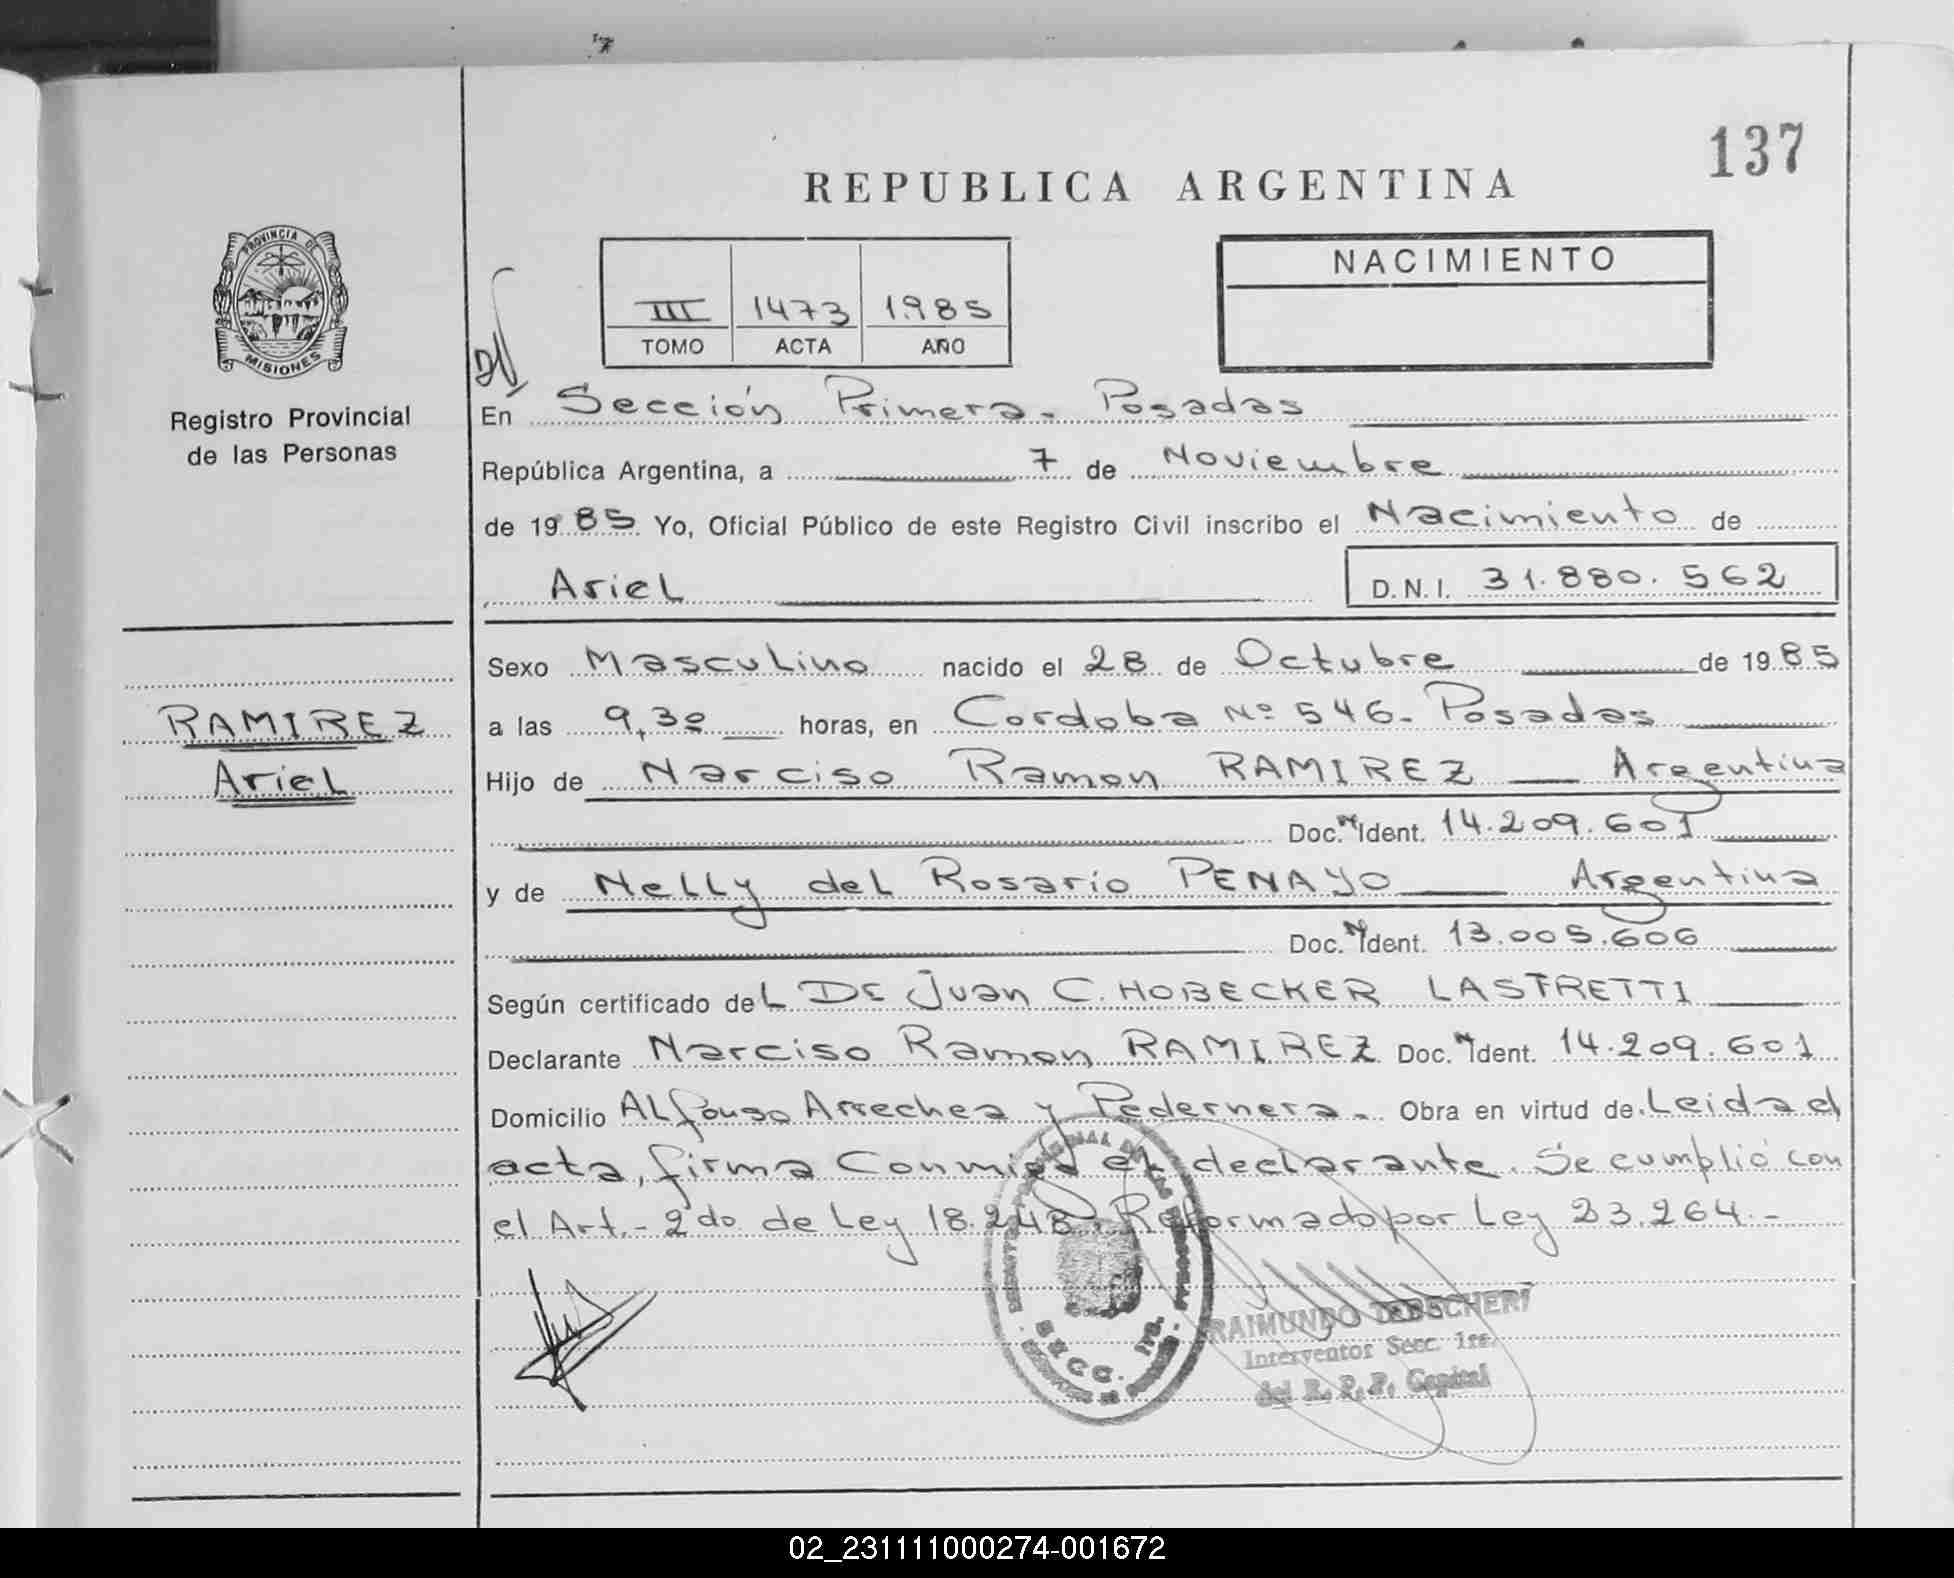 137
REPUBLICA ARGENTINA
PROVINCIA DE
MISIONES
Registro Provincial
de las Personas
III 1473 1985
TOMO ACTA AÑO
NACIMIENTO
En Sección Primera - Posadas
República Argentina, a 7 de Noviembre
de 1985 Yo, Oficial Público de este Registro Civil inscribo el Nacimiento de
Ariel
D.N.I. 31.880.562
RAMIREZ
Ariel
Sexo Masculino nacido el 28 de Octubre de 1985
a las 9,30 horas, en Cordoba Nº 546 - Posadas
Hijo de Narciso Ramon RAMIREZ Argentina
Doc. N Ident. 14.209.601
y de Nelly del Rosario PENAYO Argentina
Doc. N Ident. 13.005.606
Según certificado del Dr Juan C. HOBECKER LASTRETTI
Declarante Narciso Ramon RAMIREZ Doc. N Ident. 14.209.601
Domicilio Alfonso Arrechea y Pedernera - Obra en virtud de Leida el
acta, firma Conmigo el declarante. Se cumplió con
el Art.- 2do de Ley 18.248, Reformado por Ley 23.264.-
SECC. 1ra.
RAIMUNDO
Interventor Secc. 1ra.
del R. P. P. Capital
02_231111000274-001672